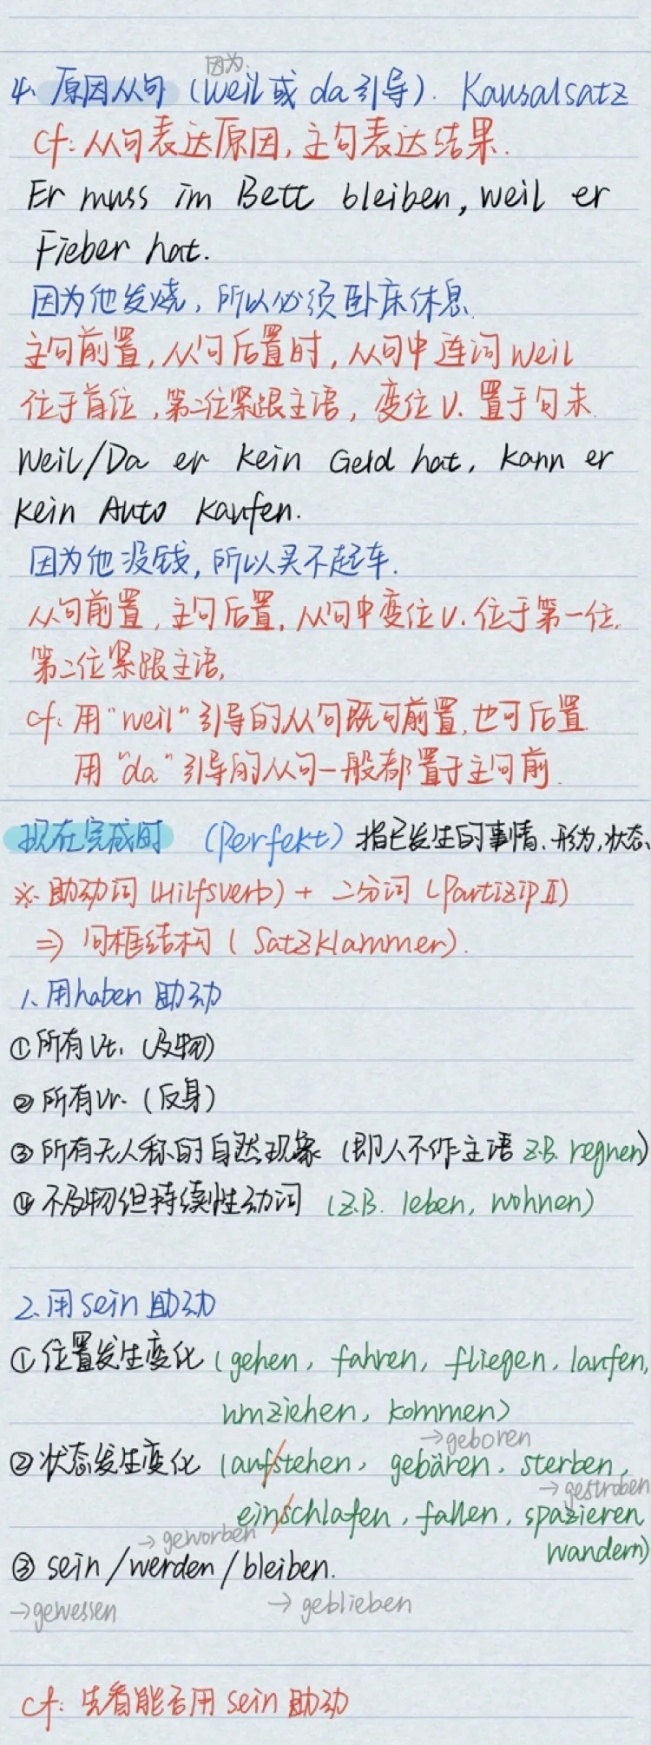 因为
4. 原因从句 (weil 或 da 引导). Kausalsatz
cf: 从句表达原因, 主句表达结果.
Er muss im Bett bleiben, weil er
Fieber hat.
因为他发烧, 所以必须卧床休息.
主句前置, 从句后置时, 从句中连词 weil
位于首位, 第二位紧跟主语, 变位 V. 置于句末.
Weil/Da er kein Geld hat, kann er
kein Auto kaufen.
因为他没钱, 所以买不起车.
从句前置, 主句后置, 从句中变位 V. 位于第一位,
第二位紧跟主语,
cf: 用"weil"引导的从句既可前置, 也可后置.
用"da"引导的从句一般都置于主句前.
现在完成时 (Perfekt) 指已发生的事情、形为, 状态、
※ 助动词 (Hilfsverb) + 二分词 (Partizip II)
⇒ 句框结构 ( Satzklammer).
1. 用haben 助动
① 所有Vt. (及物)
② 所有Vr. (反身)
③ 所有无人称的自然现象 (即人不作主语 z.B. regnen)
④ 不及物但持续性动词 (z.B. leben, wohnen)
2. 用 sein 助动
① 位置发生变化 (gehen, fahren, fliegen, laufen,
umziehen, kommen)
→geboren
② 状态发生变化 (auf/stehen, gebären, sterben,
→gestroben
ein/schlafen, fallen, spazieren,
→ geworben
wandern)
③ sein/werden/bleiben.
→gewessen → geblieben
cf: 先看能否用 sein 助动